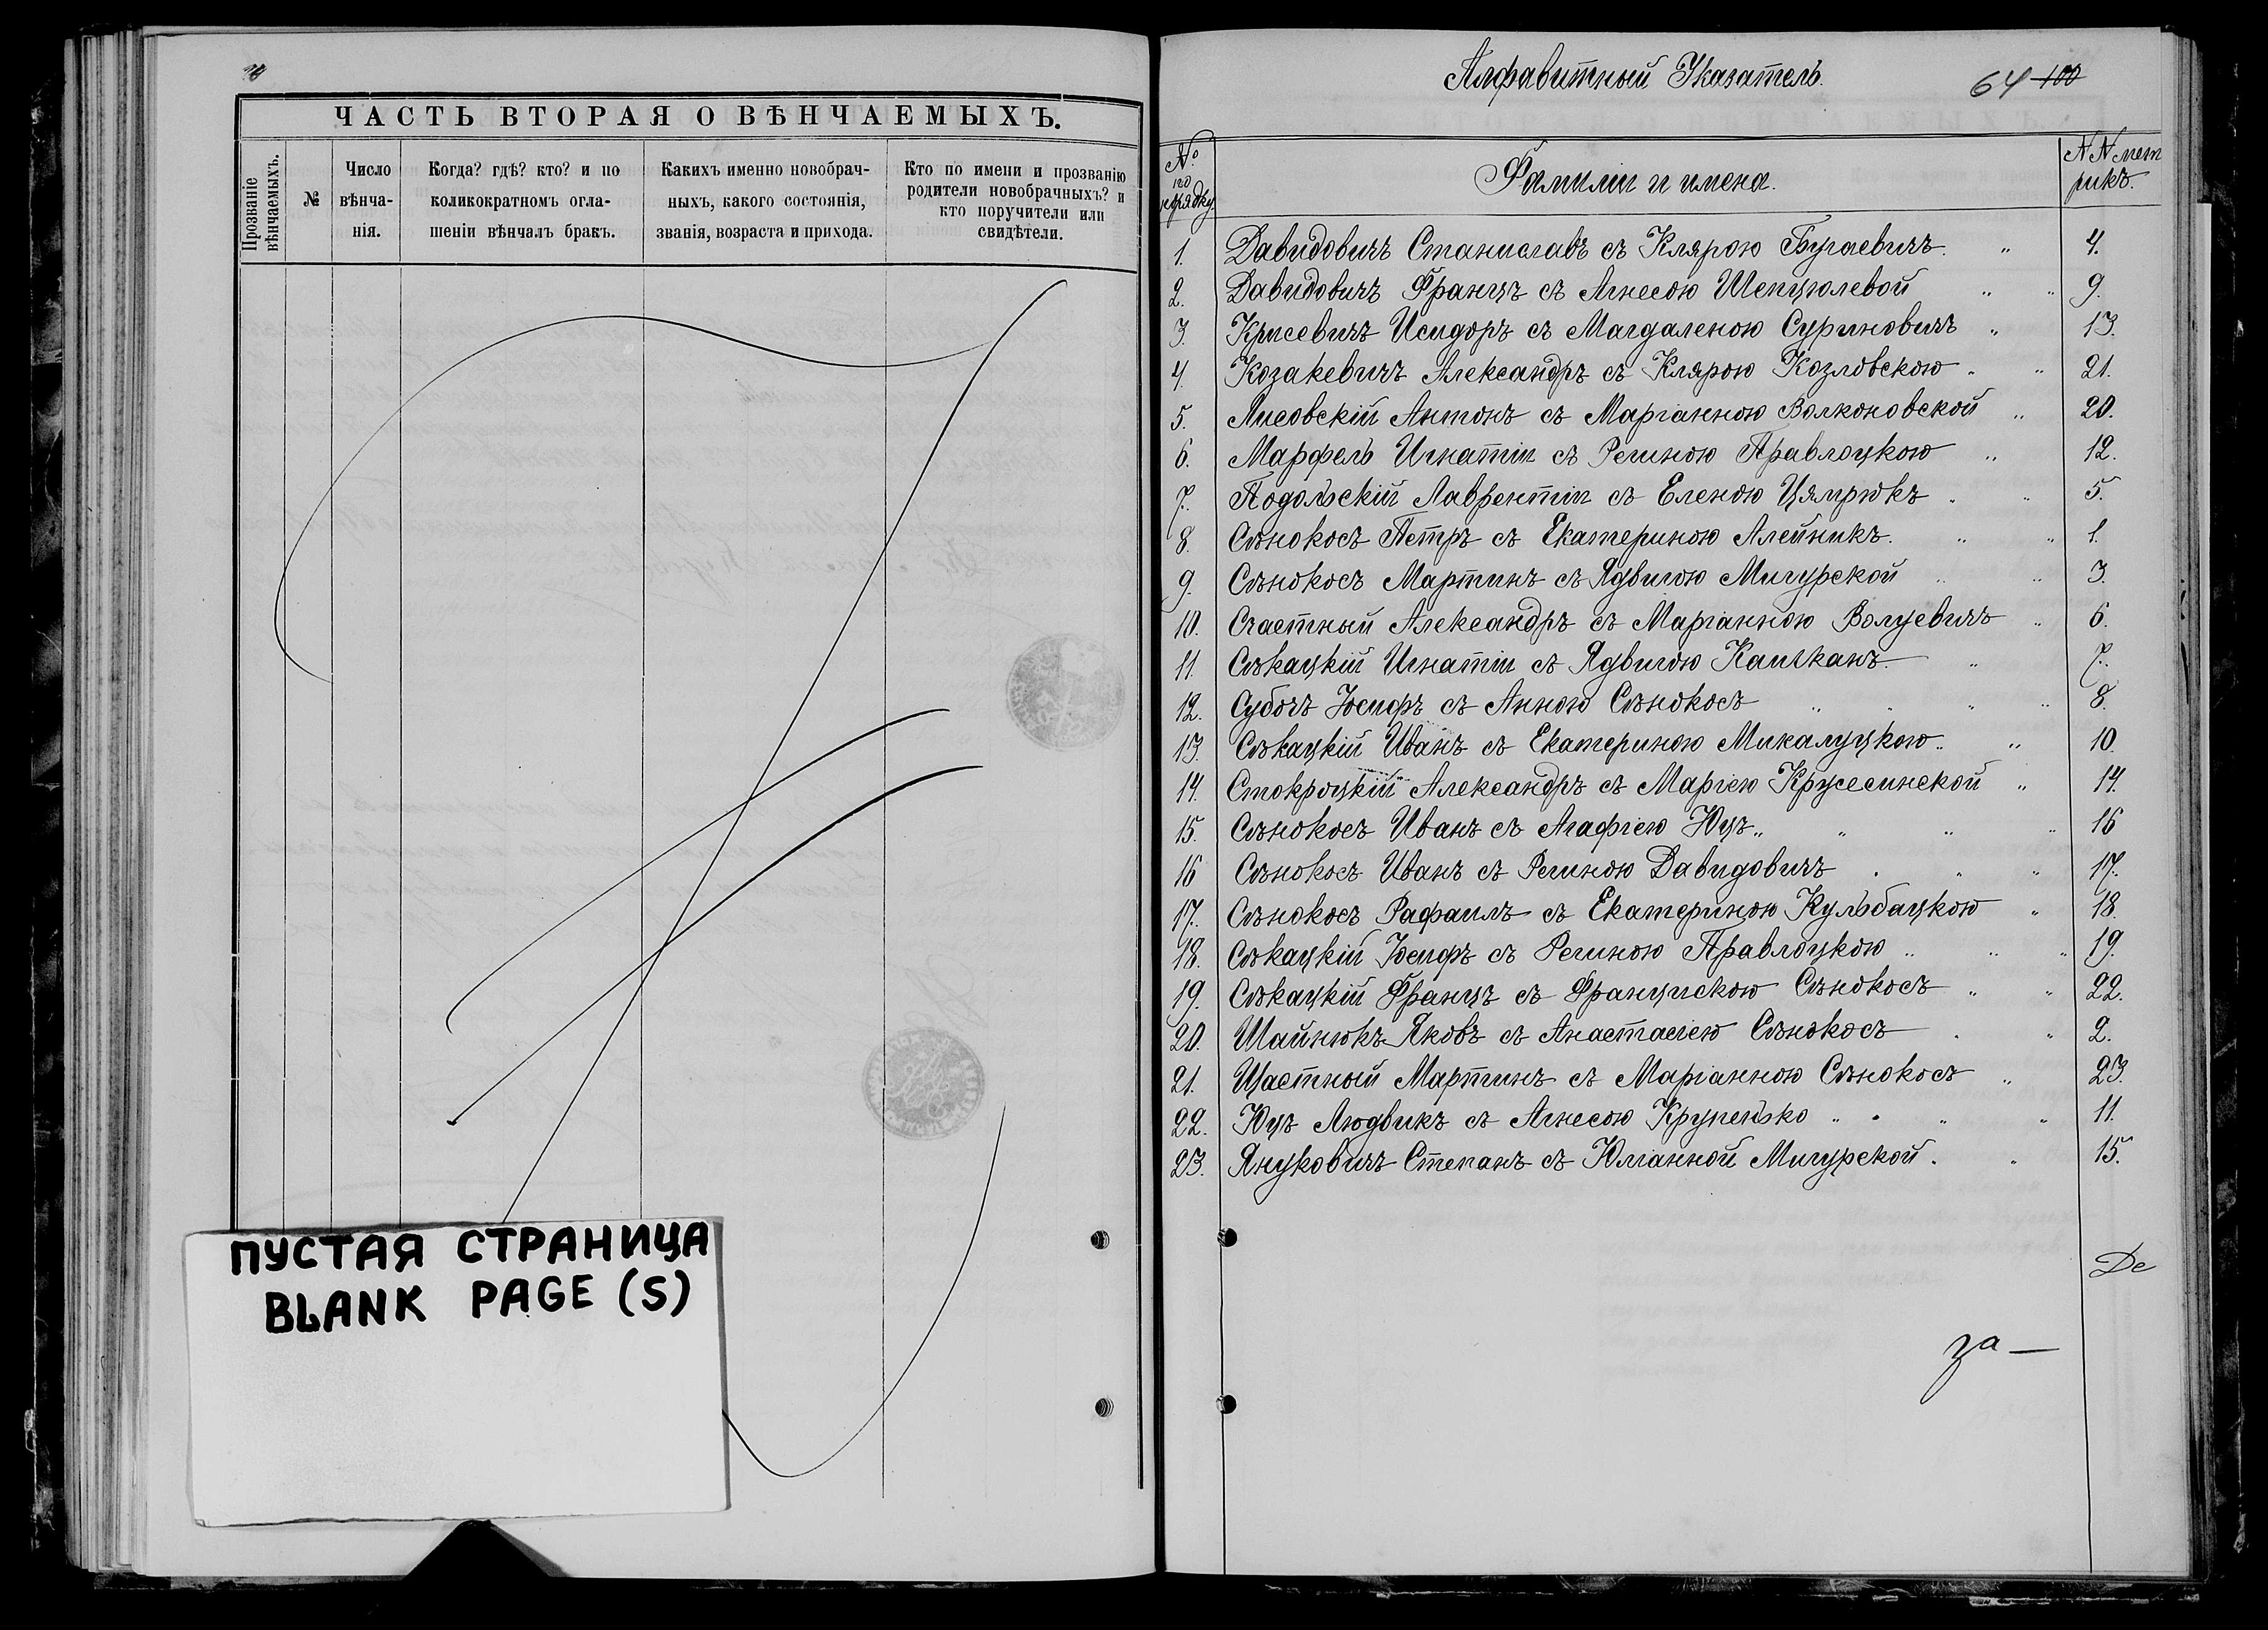 ЧАСТЬ ВТОРАЯ О ВѢНЧАЕМЫХЪ.
Прозваніе вѣнчаемыхъ.
№
Число вѣнча-
нія.
Когда? гдѣ? кто? и по
коликократномъ огла-
шеніи вѣнчалъ бракъ.
Какихъ именно новобрач-
ныхъ, какого состоянія,
званія, возраста и прихода.
Кто по имени и прозванію
родители новобрачныхъ? и
кто поручители или
свидѣтели.
ПУСТАЯ СТРАНИЦА
BLANK PAGE (S)
Алфавитный Указатель.
64 100
№ по порядку
Фамиліи и имена.
NN метрикъ.
1. Давидовичъ Станиславъ съ Клярою Бугаевичъ. 4.
2. Давидовичъ Францъ съ Агнесою Шепцюлевой 9.
3. Крисевичъ Исидоръ съ Магдаленою Суриновичъ 13.
4. Козакевичъ Александръ съ Клярою Козловскою 21.
5. Лисовскій Антонъ съ Маріанною Волконовской 20.
6. Марфель Игнатій съ Региною Правлоцкою 12.
7. Подольскій Лаврентій съ Еленою Цямрюкъ 5.
8. Сѣнокосъ Петръ съ Екатериною Алейникъ. 1.
9. Сѣнокосъ Мартинъ съ Ядвигою Мигурской 3.
10. Счастный Александръ съ Маріанною Волуевичъ 6.
11. Сѣкацкій Игнатій съ Ядвигою Каишканъ 7.
12. Субочъ Іосифъ съ Анною Сѣнокосъ 8.
13. Сѣкацкій Иванъ съ Екатериною Микалуцкою 10.
14. Стокроцкій Александръ съ Маріею Крусесинской 14.
15. Сѣнокосъ Иванъ съ Агафіею Юцъ 16
16 Сѣнокосъ Иванъ съ Региною Давидовичъ 17.
17. Сѣнокосъ Рафаилъ съ Екатериною Кульбацкою 18.
18. Сѣкацкій Іосифъ съ Региною Правлоцкою 19.
19. Сѣкацкій Францъ съ Францискою Сѣнокосъ 22.
20. Шайнюкъ Яковъ съ Анастасіею Сѣнокосъ 2.
21. Щастный Мартинъ съ Маріанною Сѣнокосъ 23.
22. Юцъ Людвикъ съ Агнесою Крупенько 11.
23. Януковичъ Степанъ съ Юліанной Мигурской. 15.
Де
за —